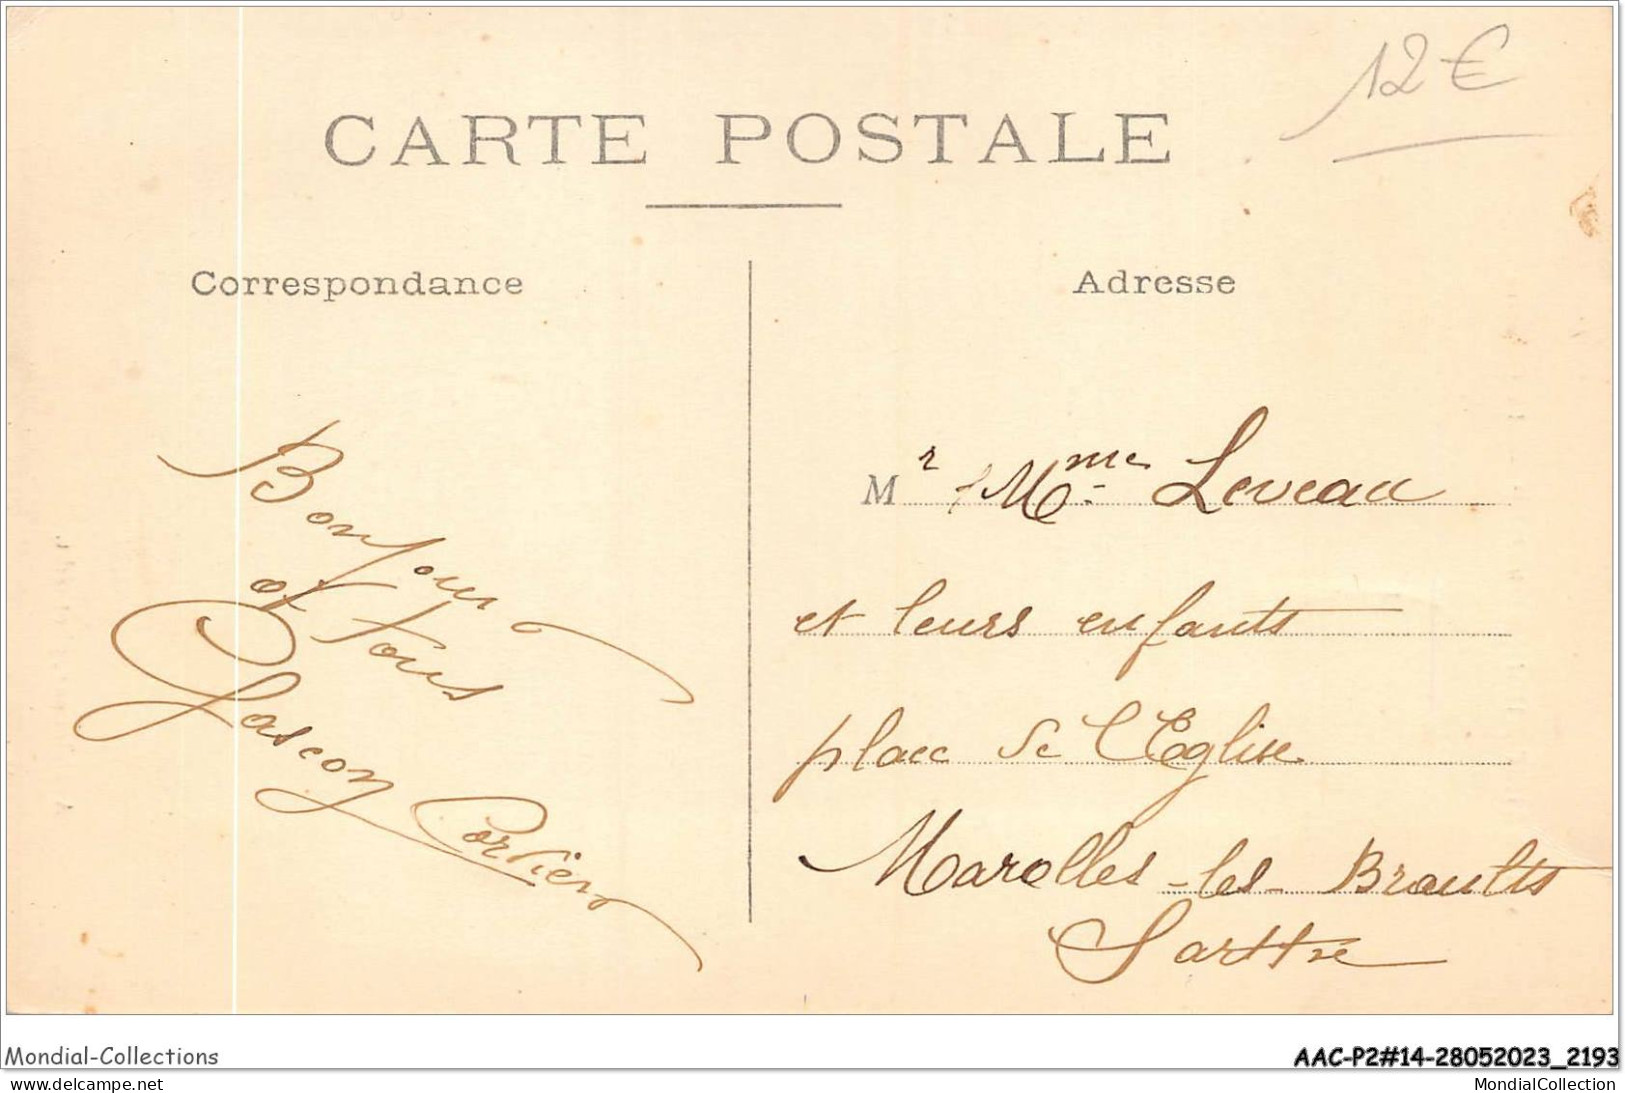 12 €
CARTE POSTALE
Correspondance
Adresse
Bonjour
à tous
Gascon Cordier
Mr & Mme Leveau
et leurs enfants
place de l'Eglise
Marolles-les-Braults
Sarthe
Mondial-Collections
AAC-P2#14-28052023_2193
www.delcampe.net
MondialCollection